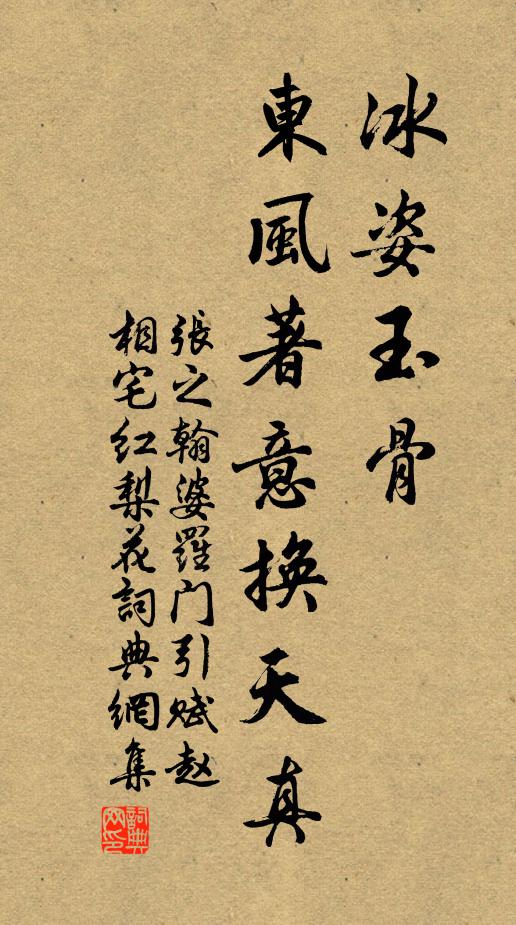 冰姿玉骨
東風著意換天真
張之翰婆羅门引赋赵
相宅红梨花詞典網集
詞典网印